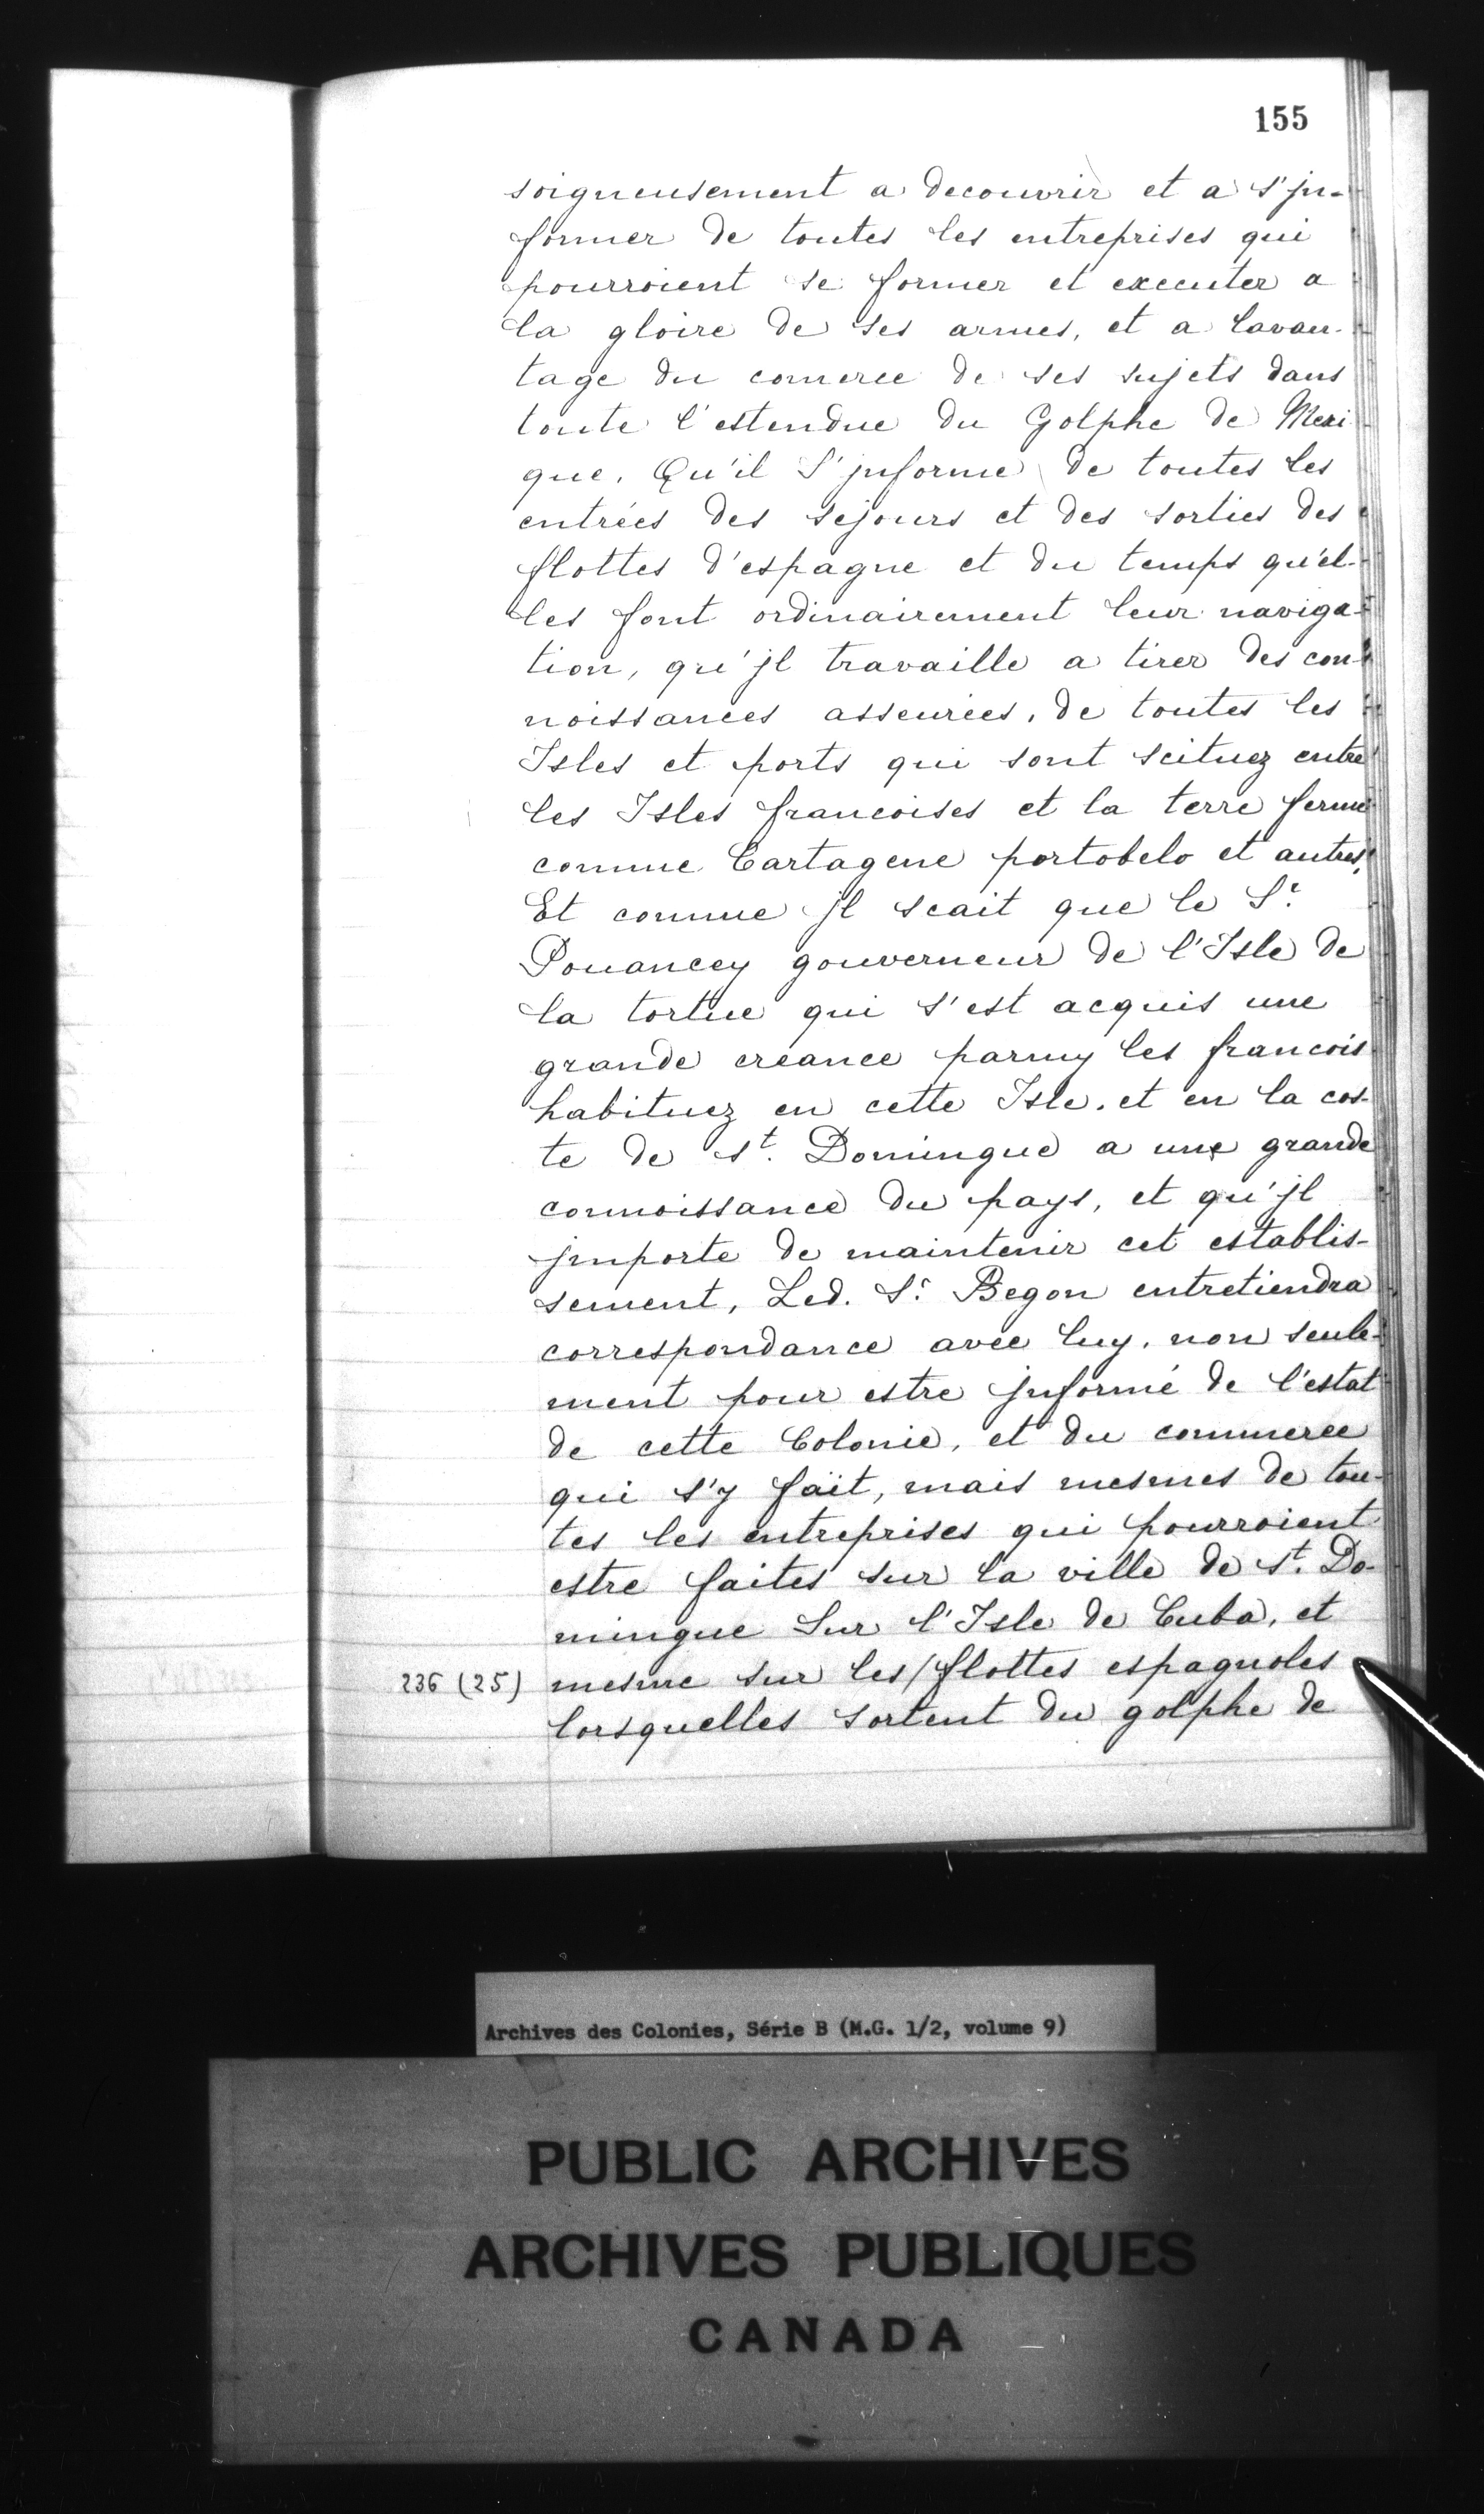 155
soigneusement a decouvrir et a s'jn-
former de toutes les entreprises qui
pourroient se former et executer a
la gloire de ses armes, et a lavan-
tage du comerce de ses sujets dans
toute l'estendue du Golphe de Mexi
que. Qu'il s'jnforme de toutes les
entrées des sejours et des sorties des
flottes d'espagne et du temps qu'el-
les font ordinairement leur naviga-
tion, qu'jl travaille a tirer des con-
noissances asseurées, de toutes les
Isles et ports qui sont scituez entre
les Isles francoises et la terre ferme
comme Cartagene portobelo et autres,
Et comme jl scait que le Sr.
Pouancey gouverneur de l'Isle de
la tortue qui s'est acquis une
grande creance parmy les francois
habituez en cette Isle, et en la cos-
te de St. Domingue a une grande
connoissance du pays, et qu'jl
jmporte de maintenir cet establis-
sement, Led. Sr. Begon entretiendra
correspondance avec luy, non seule-
ment pour estre jnformé de l'estat
de cette Colonie, et du commerce
qui s'y fait, mais mesmes de tou-
tes les entreprises qui pourroient
estre faites sur la ville de St. Do-
mingue Sur l'Isle de Cuba, et
236 (25) mesme sur les/flottes espagnoles
lorsquelles sortent du golphe de
Archives des Colonies, Série B (M.G. 1/2, volume 9)
PUBLIC ARCHIVES
ARCHIVES PUBLIQUES
CANADA